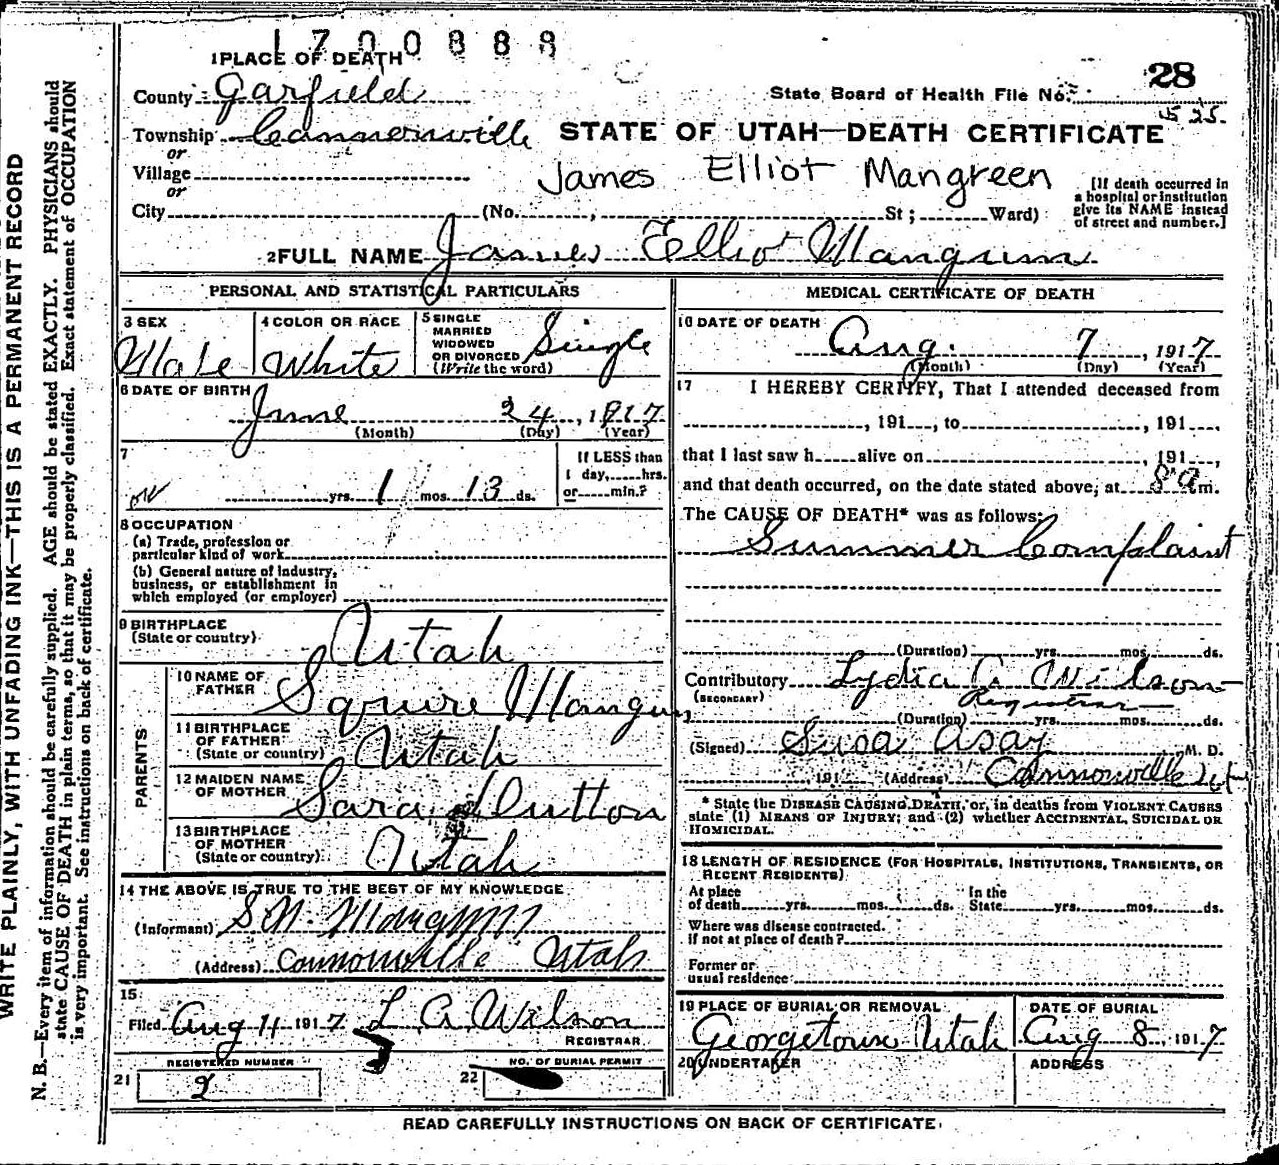 1700888
1 PLACE OF DEATH
28
County Garfield
State Board of Health File No.
525.
Township Cannonville
STATE OF UTAH—DEATH CERTIFICATE
or
Village
James Elliot Mangreen
or
City (No. , St ; Ward)
[If death occurred in
a hospital or institution
give its NAME instead
of street and number.]
2 FULL NAME James Elliot Mangum
PERSONAL AND STATISTICAL PARTICULARS
3 SEX
Male
4 COLOR OR RACE
White
5 SINGLE
MARRIED
WIDOWED
OR DIVORCED
(Write the word)
Single
6 DATE OF BIRTH
June 24, 1917
(Month) (Day) (Year)
7
yrs. 1 mos. 13 ds.
If LESS than
1 day, hrs.
or min.?
8 OCCUPATION
(a) Trade, profession or
particular kind of work
(b) General nature of industry,
business, or establishment in
which employed (or employer)
9 BIRTHPLACE
(State or country)
Utah
PARENTS
10 NAME OF
FATHER
Squire Mangum
11 BIRTHPLACE
OF FATHER
(State or country)
Utah
12 MAIDEN NAME
OF MOTHER
Sara Dutton
13 BIRTHPLACE
OF MOTHER
(State or country)
Utah
14 THE ABOVE IS TRUE TO THE BEST OF MY KNOWLEDGE
(Informant) S.N. Mangum
(Address) Cannonville Utah
15
Filed Aug 11 1917 L A Wilson
REGISTRAR
REGISTERED NUMBER
21 2
NO. OF BURIAL PERMIT
22
MEDICAL CERTIFICATE OF DEATH
16 DATE OF DEATH
Aug. 7, 1917
(Month) (Day) (Year)
17 I HEREBY CERTIFY, That I attended deceased from
, 191 , to , 191 ,
that I last saw h alive on , 191 ,
and that death occurred, on the date stated above, at 8 a m.
The CAUSE OF DEATH* was as follows:
Summer Complaint
(Duration) yrs. mos. ds.
Contributory Lydia A Wilson
(SECONDARY) Registrar
(Duration) yrs. mos. ds.
(Signed) Susa Asay M. D.
, 191 (Address) Cannonville Ut
* State the DISEASE CAUSING DEATH, or, in deaths from VIOLENT CAUSES
state (1) MEANS OF INJURY; and (2) whether ACCIDENTAL, SUICIDAL OR
HOMICIDAL.
18 LENGTH OF RESIDENCE (FOR HOSPITALS, INSTITUTIONS, TRANSIENTS, OR
RECENT RESIDENTS)
At place
of death yrs. mos. ds.
In the
State yrs. mos. ds.
Where was disease contracted.
if not at place of death?
Former or
usual residence
19 PLACE OF BURIAL OR REMOVAL
Georgetown Utah
DATE OF BURIAL
Aug 8, 1917
20 UNDERTAKER
ADDRESS
READ CAREFULLY INSTRUCTIONS ON BACK OF CERTIFICATE.
WRITE PLAINLY, WITH UNFADING INK—THIS IS A PERMANENT RECORD
N. B.—Every item of information should be carefully supplied. AGE should be stated EXACTLY. PHYSICIANS should
state CAUSE OF DEATH in plain terms, so that it may be properly classified. Exact statement of OCCUPATION
is very important. See instructions on back of certificate.